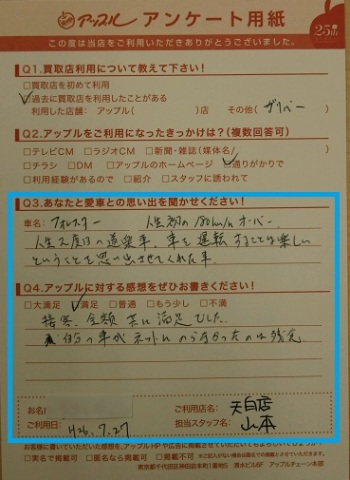 アップル アンケート用紙
25th
この度は当店をご利用いただきありがとうございました。
Q1.買取店利用について教えて下さい!
□買取店を初めて利用
☑過去に買取店を利用したことがある
利用した店舗: アップル( )店 その他( ガリバー )
Q2.アップルをご利用になったきっかけは?(複数回答可)
□テレビCM □ラジオCM □新聞・雑誌(媒体名/ )
□チラシ □DM □アップルのホームページ ☑通りがかりで
□利用経験があるので □紹介 □スタッフに誘われて
Q3.あなたと愛車との思い出を聞かせください!
車名: フォレスター 人生初の180km/hオーバー。
人生2度目の道楽車。車を運転することは楽しい
ということを思い出させてくれた車。
Q4.アップルに対する感想をぜひお書きください!
□大満足 ☑満足 □普通 □もう少し □不満
接客、金額 共に満足でした。
自分の車がネットにのらなかったのは残念
お名前
ご利用日: H26.7.27
ご利用店名: 天白店
担当スタッフ名: 山本
お客様に書いていただいた感想を、アップルHPや広告に掲載させていただいてもよろしいでしょうか?
□実名で掲載可 □匿名なら掲載可 □掲載不可
東京都千代田区神田錦本町1番地 清水ビル6F アップルチェーン本部